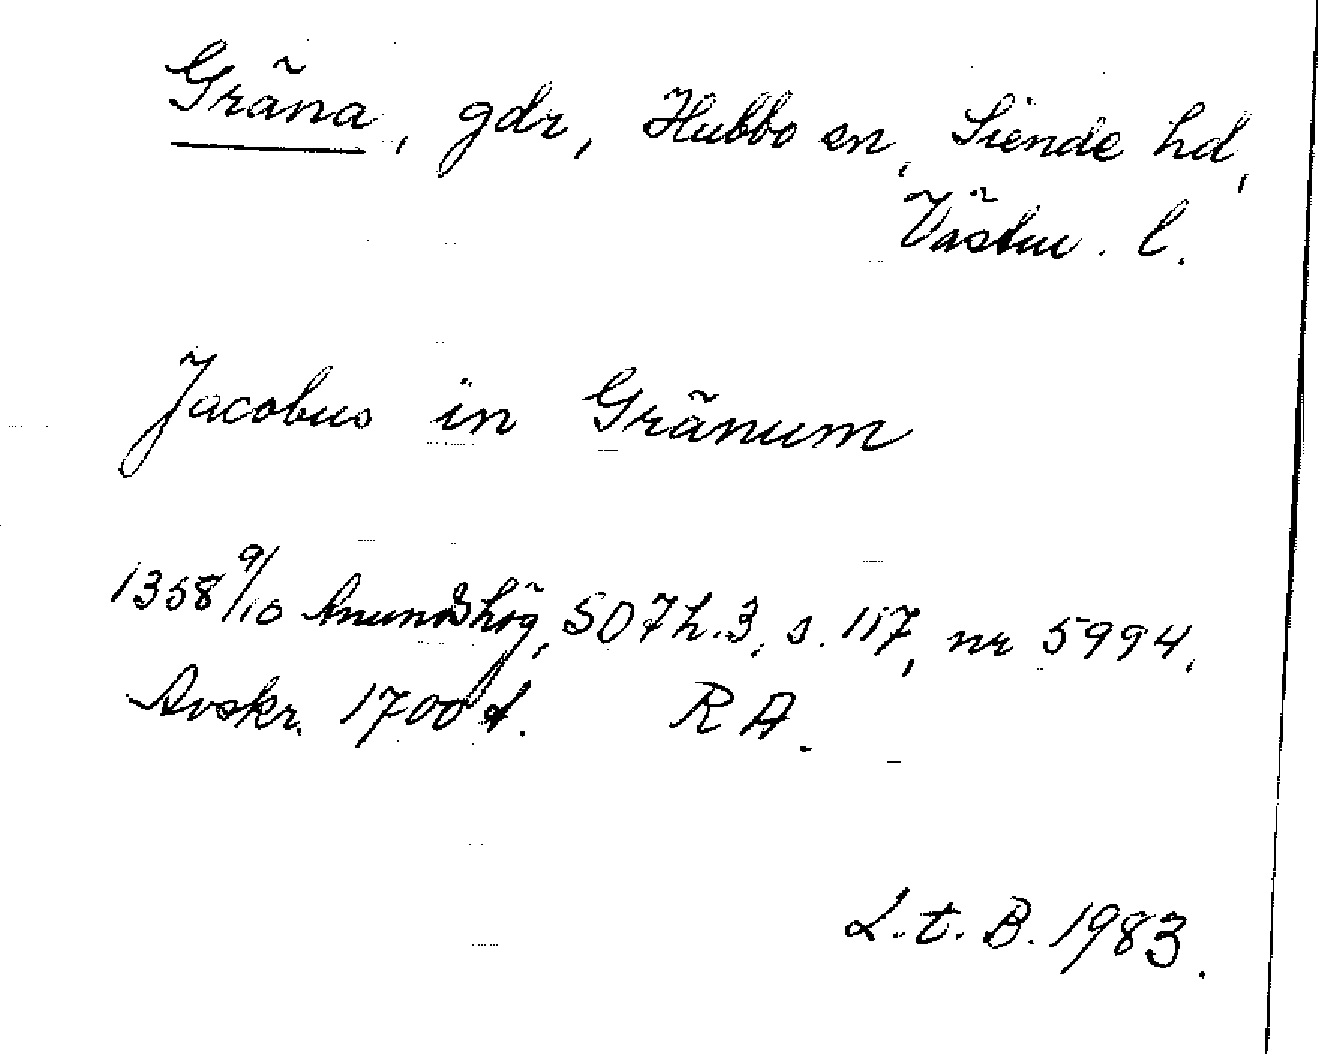 Gräna, gdr, Hubbo sn, Siende hd,
Västm. l.
Jacobus in Gränum
1358 9/10 Anundshög, SD 7 h. 3, s. 117, nr 5994,
Avskr. 1700 t. RA.
L. t. B. 1983.